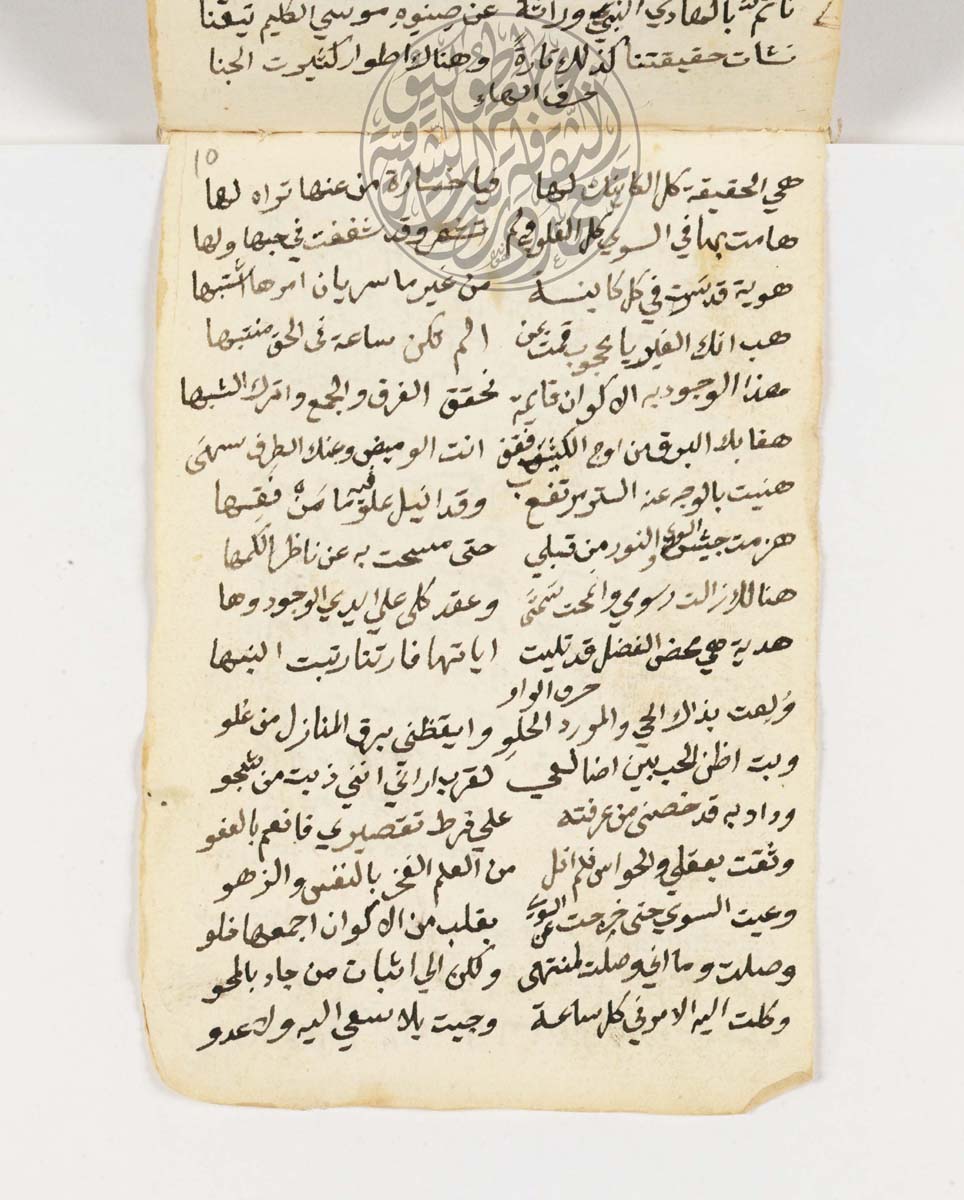 بالهادي النبي وراثة عن صنوه موسي الكليم تيقنا
نشات حقيقتنا كذلك تارة وهناك اطوار كثيرت الجنا
حرف الهاء
١٥
هي الحقيقة كل الكاينات لها فيا خسارة من عنها تراه لها
هامت بها في السوي كل القلوب ولم تشعر وقد شغفت في حبها ولها
هوية قد سرت في كل كاينة من غير ما سريان امرها اشتبها
هب انك الغير يا محجوب قمت بمن الم تكن ساعة في الحق منتبها
هذا الوجود به الاكوان قايمة فحقق الفرق والجمع واترك الشبها
هفا بك البرق من اوج الكثيف فقف انت الوميض وعنك الطرف سهي
هنيت بالوجه عنه الستر مرتفع وقد انيل علوما من فيه فقها
هزمت جيش السوي والنور من قبلي حتى مسحت به عن ناظر الكمها
هنالك زالت رسومي وانمحت سمتي وعقد كلي علي ايدي الوجود وها
هدية هي محض الفضل قد تليت اياتها فارتنا رتبت النبها
حرف الواو
ولعت بذاك الحي والمورد الحلو وايقظني برق المنازل من غلو
وبت اظن الحب بين اضالعي لقرب اراني انني ذبت من شجو
وداد به قد خصني من عرفته علي فرط تقصيري فانعم بالعفو
وثقت بعقلي والحواس فلم انل من العلم الفخر بالنفس والزهو
وعيت السوي حتى خرجت عن السوي بقلب من الاكوان اجمعها خلو
وصلت وما اني وصلت لمنتهى ولكن الي اثبات من جاد بالمحو
وكلت اليه الامر في كل ساعة وجيت بلا سعي اليه ولا عدو